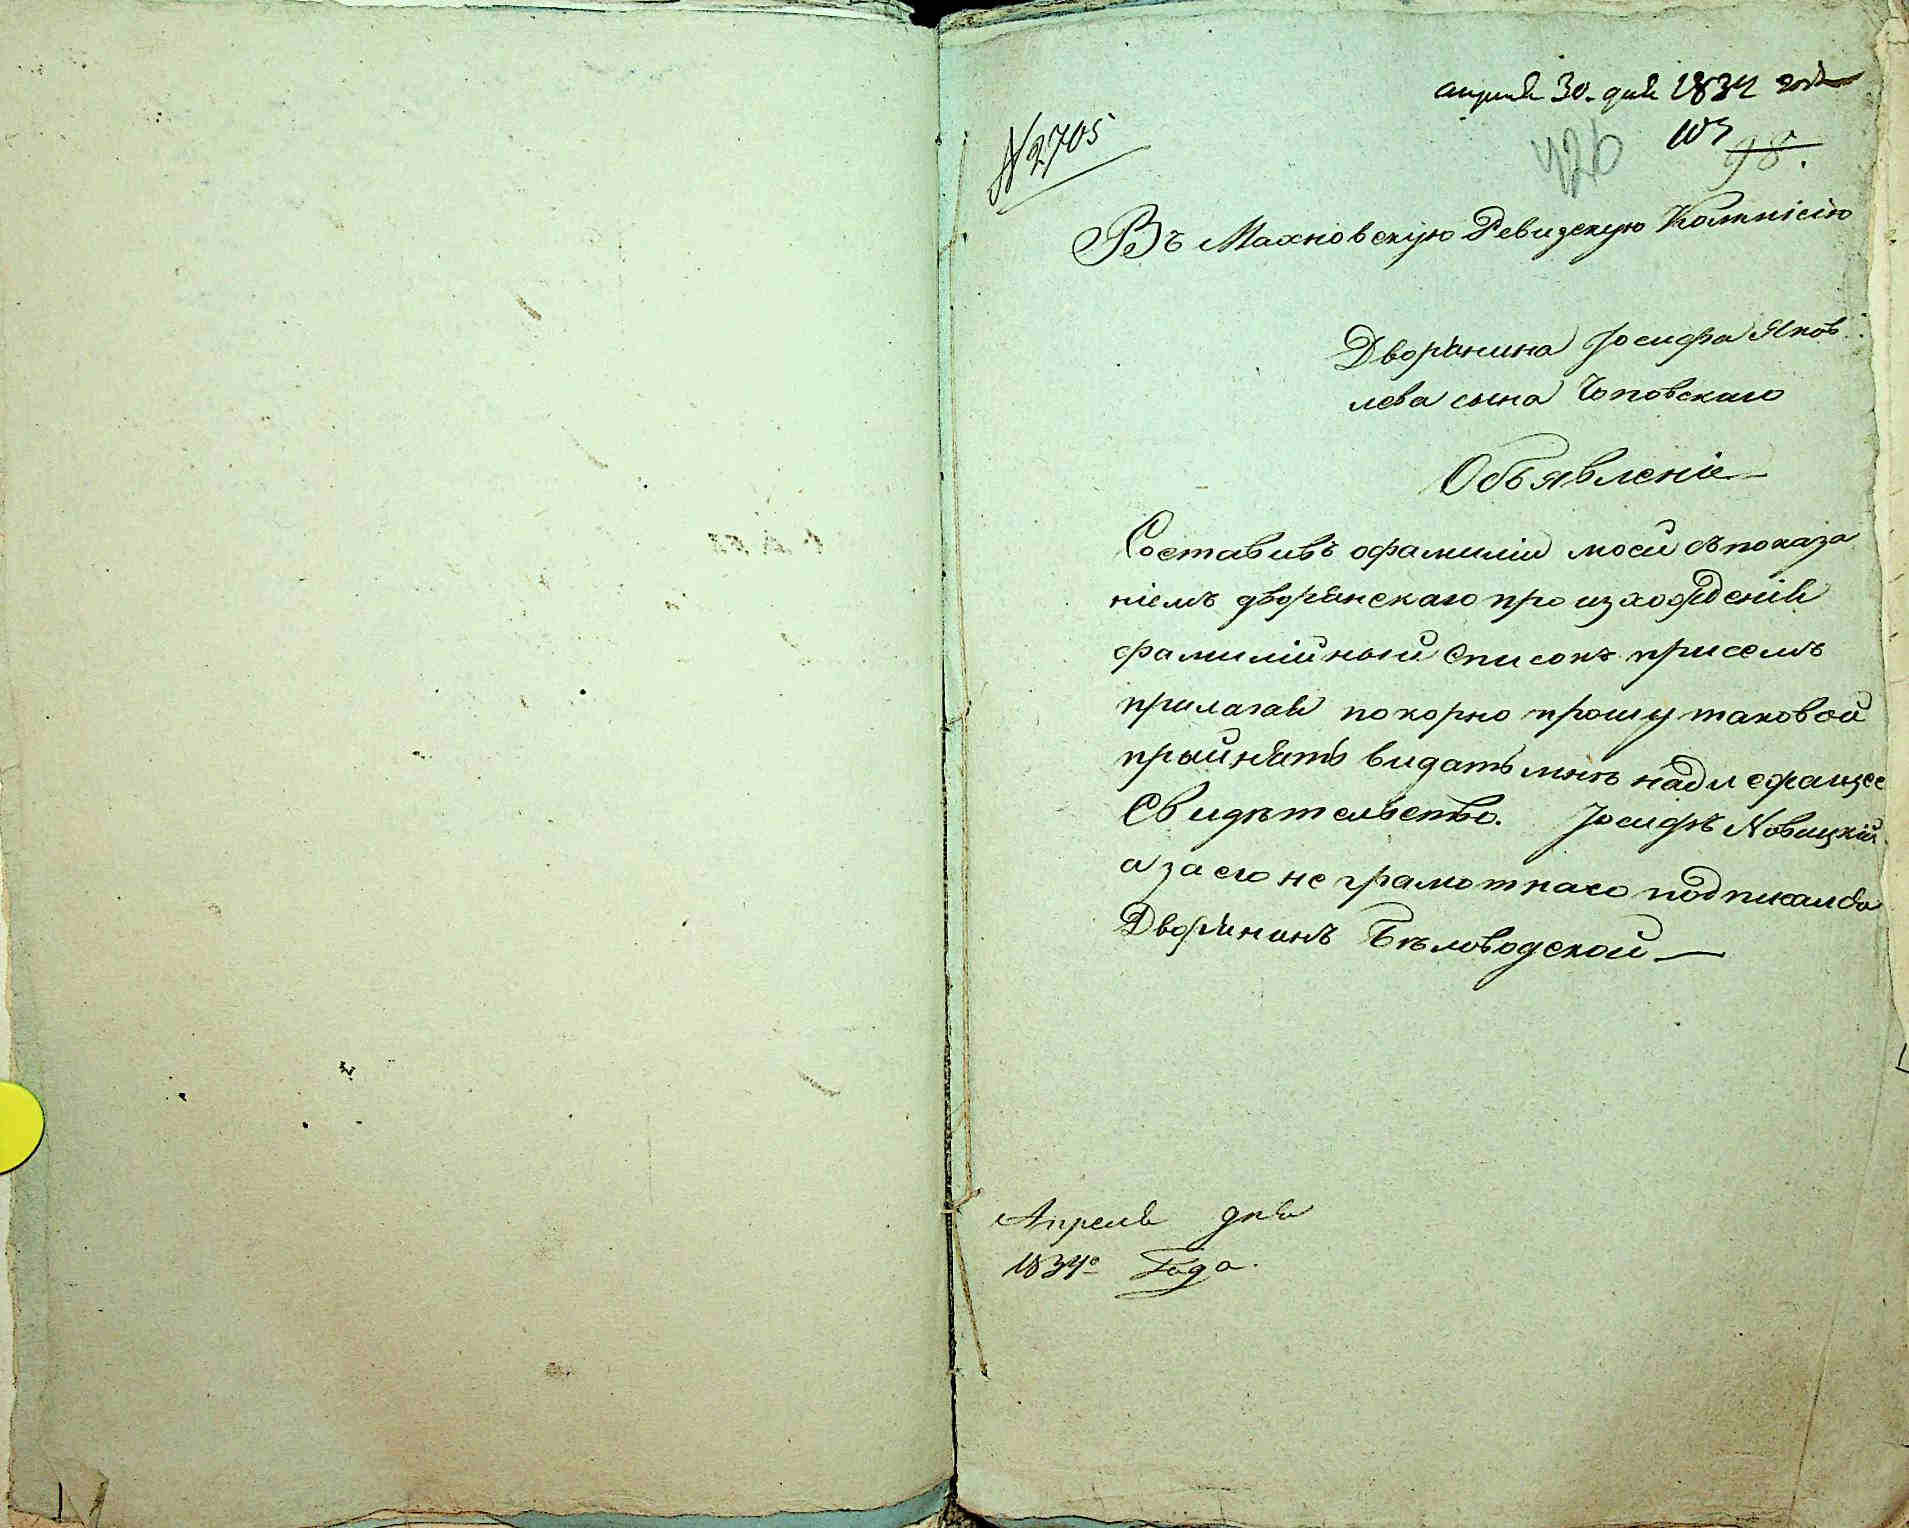 апреля 30. дня 1834 года
№ 2705
426
98.
Въ Махновскую Ревизскую Коммісію
Дворянина Іосифа Яков
лева сына Чоповскаго
Объявленіе
Составивъ офамиліи моей съпоказа
ніемъ дворянскаго произхожденія
фамилійный списокъ присемъ
прилагая покорно прошу таковой
прыйнять видать мнѣ надлежащее
Свидѣтельство. Іосифъ Новицкій
а за его не грамотнаго подписалъ
Дворянинъ Бѣловодской
Апреля дня
1834го Года.